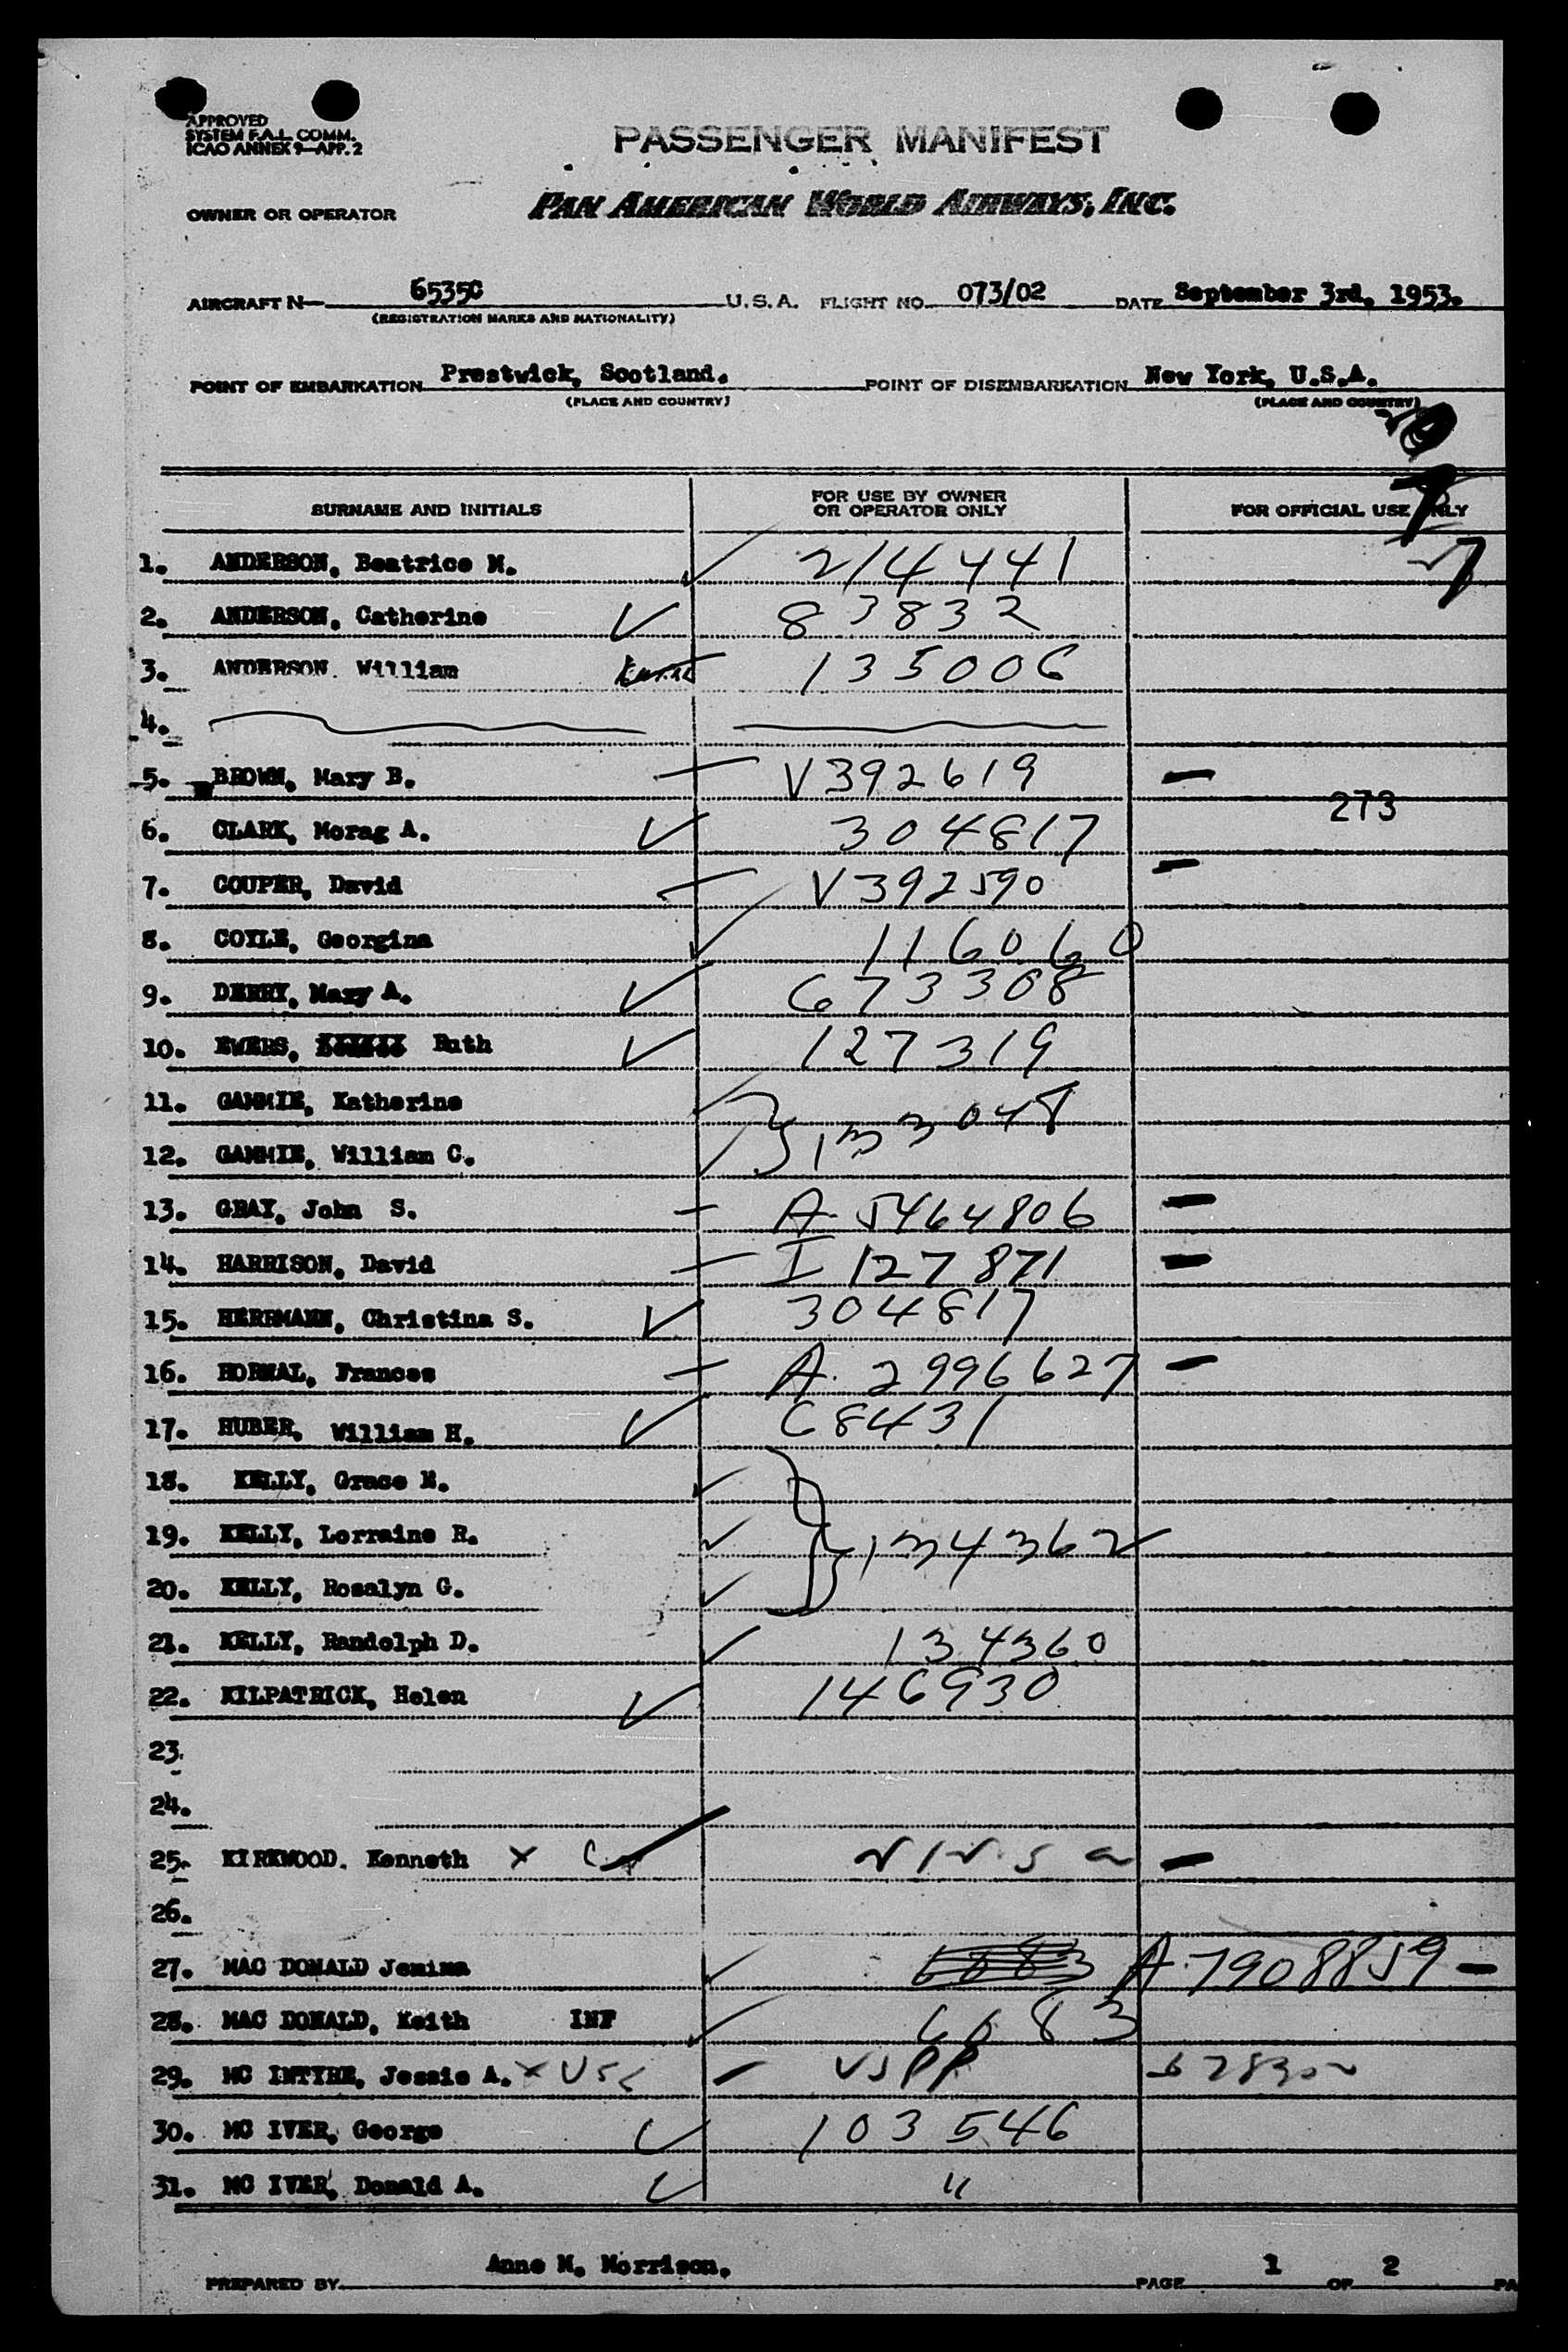 APPROVED
SYSTEM F.A.L. COMM.
ICAO ANNEX 9—APP. 2
PASSENGER MANIFEST
OWNER OR OPERATOR PAN AMERICAN WORLD AIRWAYS, INC.
AIRCRAFT N— 6535C U.S.A. FLIGHT NO. 073/02 DATE September 3rd, 1953.
(REGISTRATION MARKS AND NATIONALITY)
POINT OF EMBARKATION Prestwick, Scotland. POINT OF DISEMBARKATION New York, U.S.A.
(PLACE AND COUNTRY) (PLACE AND COUNTRY)
SURNAME AND INITIALS FOR USE BY OWNER OR OPERATOR ONLY FOR OFFICIAL USE ONLY
1. ANDERSON, Beatrice M. 214441
2. ANDERSON, Catherine 83832
3. ANDERSON, William 135006
4.
5. BROWN, Mary B. V392619
273
6. CLARK, Morag A. 304817
7. COUPER, David V392590
8. COYLE, Georgina 116060
9. DERRY, Mary A. 673308
10. EWERS, Ruth 127319
11. GAMMIE, Katherine
133048
12. GAMMIE, William C.
13. GRAY, John S. A. 5464806
14. HARRISON, David I 127871
15. HERRMANN, Christina S. 304817
16. HORNAL, Frances A. 2996627
17. HUBER, William H. C8431
18. KELLY, Grace M.
19. KELLY, Lorraine R. 134362
20. KELLY, Rosalyn G.
21. KELLY, Randolph D. 134360
22. KILPATRICK, Helen 146930
23.
24.
25. KIRKWOOD, Kenneth X
26.
27. MAC DONALD Jemima 6683 A.7908859 -
28. MAC DONALD, Keith INF 6683
29. MC INTYRE, Jessie A. X USC USPP
30. MC IVER, George 103546
31. MC IVER, Donald A. "
PREPARED BY Anne M. Morrison. PAGE 1 OF 2